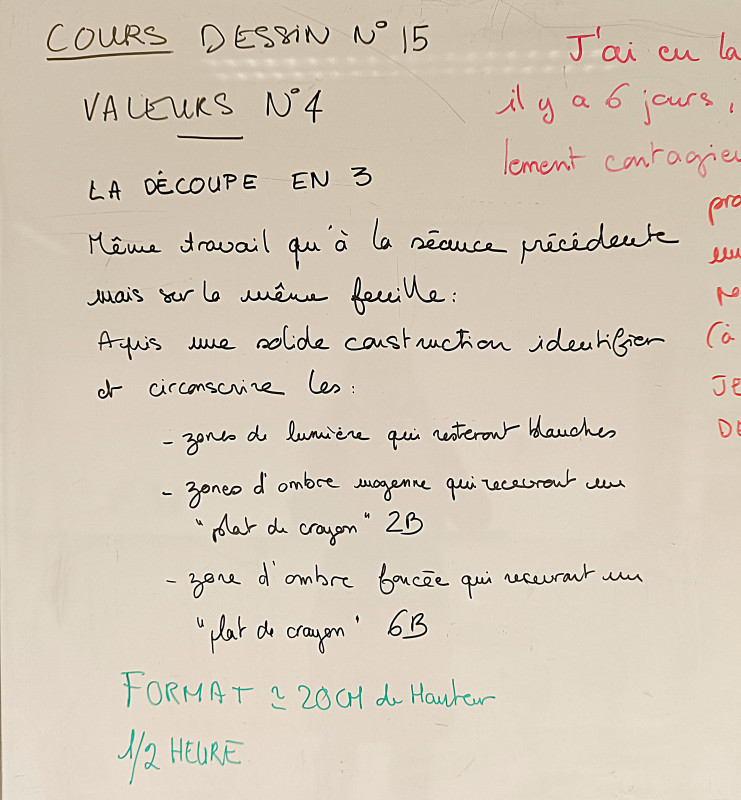 COURS DESSIN N° 15
VALEURS N°4
LA DÉCOUPE EN 3
Même travail qu'à la séance précédente
mais sur la même feuille :
Après une solide construction identifier
et circonscrire les :
- zones de lumière qui resteront blanches
- zones d'ombre moyenne qui recevront un
"plat de crayon" 2B
- zone d'ombre foncée qui recevront un
"plat de crayon" 6B
FORMAT ≃ 20CM de Hauteur
1/2 HEURE
J'ai eu la
il y a 6 jours,
lement contagieu
pro
(à
JE
DE